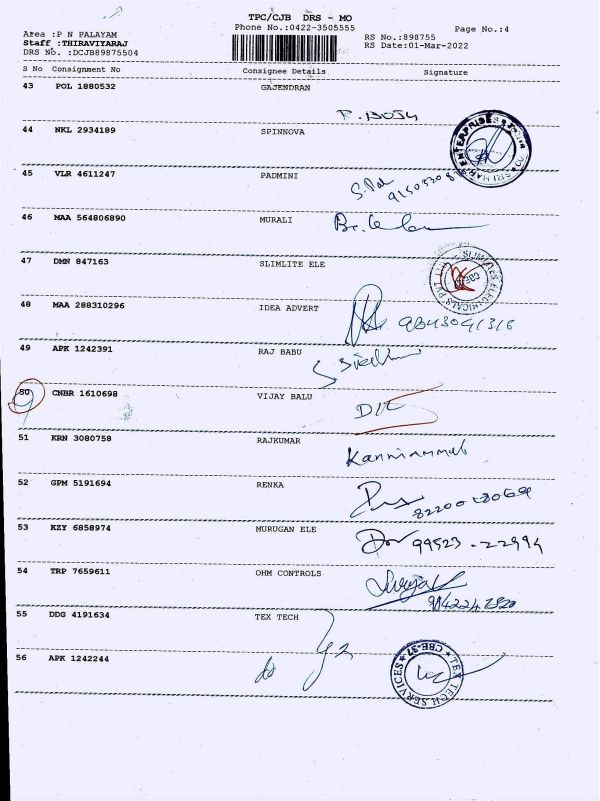 TPC/CJB DRS - MO
Phone No.:0422-3505555
Page No.:4
Area :P N PALAYAM
Staff :THIRAVIYARAJ
DRS No. :DCJB89875504
RS No.:898755
RS Date:01-Mar-2022
S No Consignment No Consignee Details Signature
43 POL 1880532 GAJENDRAN
44 NKL 2934189 SPINNOVA
45 VLR 4611247 PADMINI
46 MAA 564806890 MURALI
47 DMN 847163 SLIMLITE ELE
48 MAA 288310296 IDEA ADVERT
49 APK 1242391 RAJ BABU
50 CNBR 1610698 VIJAY BALU
51 KRN 3080758 RAJKUMAR
Kanniammal
52 GPM 5191694 RENKA
53 KZY 6858974 MURUGAN ELE
99523-22994
54 TRP 7659611 OHM CONTROLS
55 DDG 4191634 TEX TECH
56 APK 1242244
TEX TECH SERVICES
CBE-37